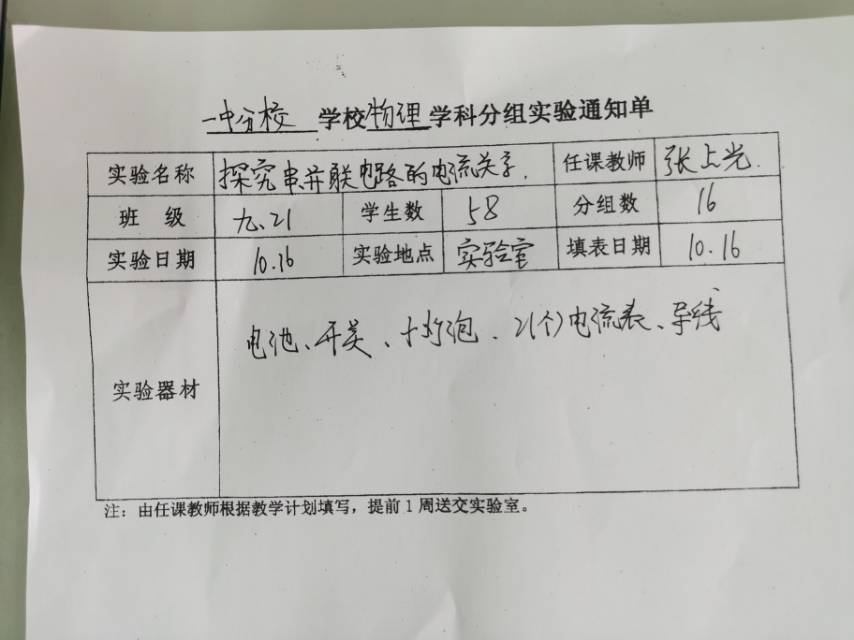 一中分校 学校 物理 学科分组实验通知单
实验名称 探究串并联电路的电流关系. 任课教师 张上光.
班 级 九.21 学生数 58 分组数 16
实验日期 10.16 实验地点 实验室 填表日期 10.16
实验器材 电池、开关、小灯泡、2(个)电流表、导线
注：由任课教师根据教学计划填写，提前1周送交实验室。